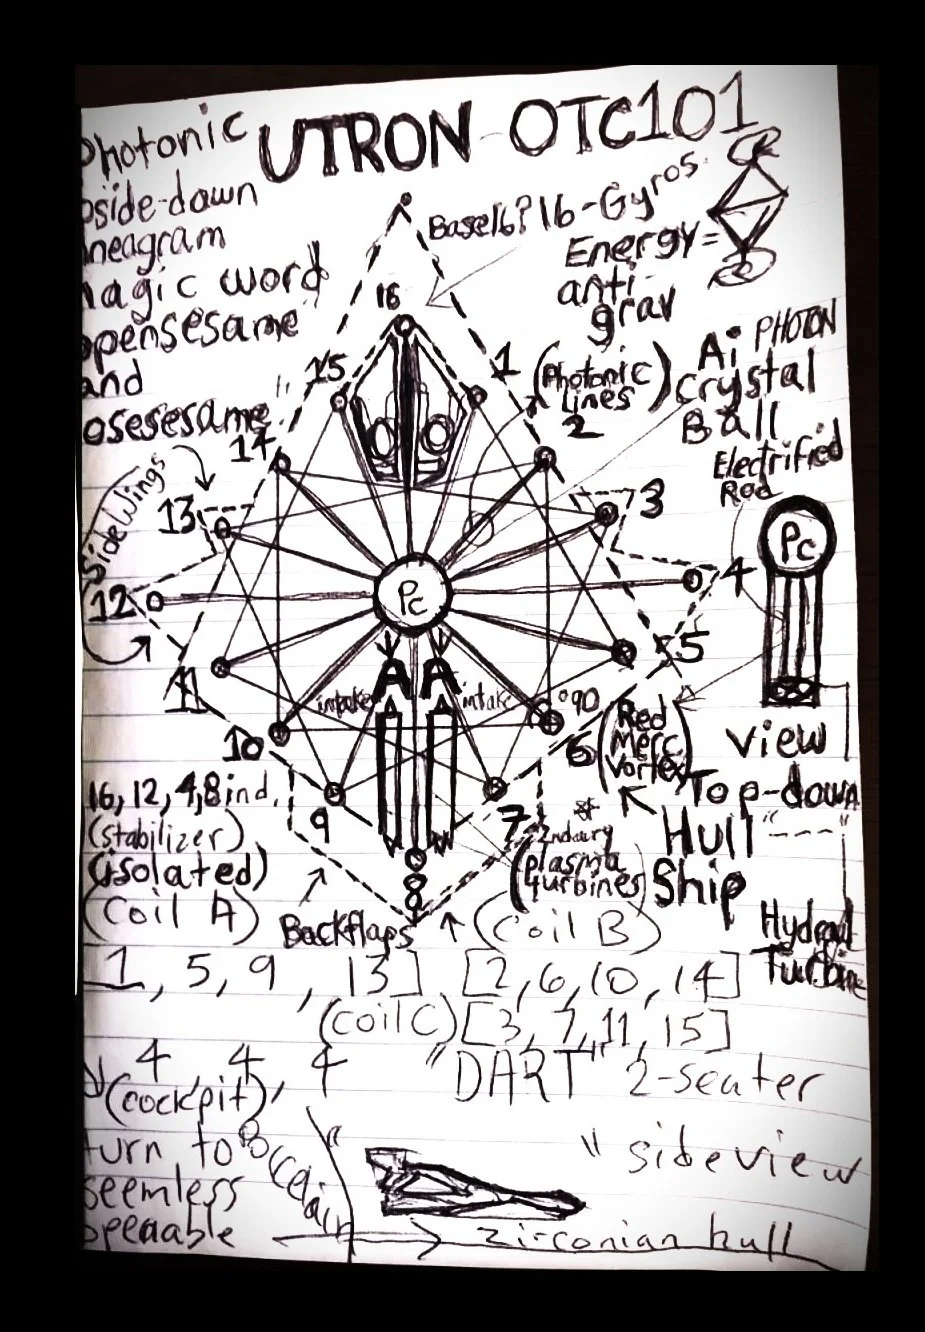 UTRON OTC101
Photonic
pside-down
neagram
magic word
opensesame
and
osesesame
Base16? 16-Gyros
Energy=
anti
grav
Ai PHOTON
Crystal
Ball
(Photonic
Lines)
Electrified
Rod
SideWings
16
15
14
13
12
11
10
9
8
7
6
5
4
3
2
1
Pc
Pc
A A
intake
intake
°90
(Red
Merc
Vortex)
view
Top-down
Hull "----"
Ship
Hydraul
Turbine
2ndary
(plasma
turbines)
16, 12, 4, 8 ind.
(stabilizer)
(isolated)
(Coil A)
Backflaps
(Coil B)
1, 5, 9, 13] [2, 6, 10, 14]
(coil C) [3, 7, 11, 15]
4, 4, 4 "DART" 2-seater
(cockpit)
turn to
seemless
"sideview
zirconian hull